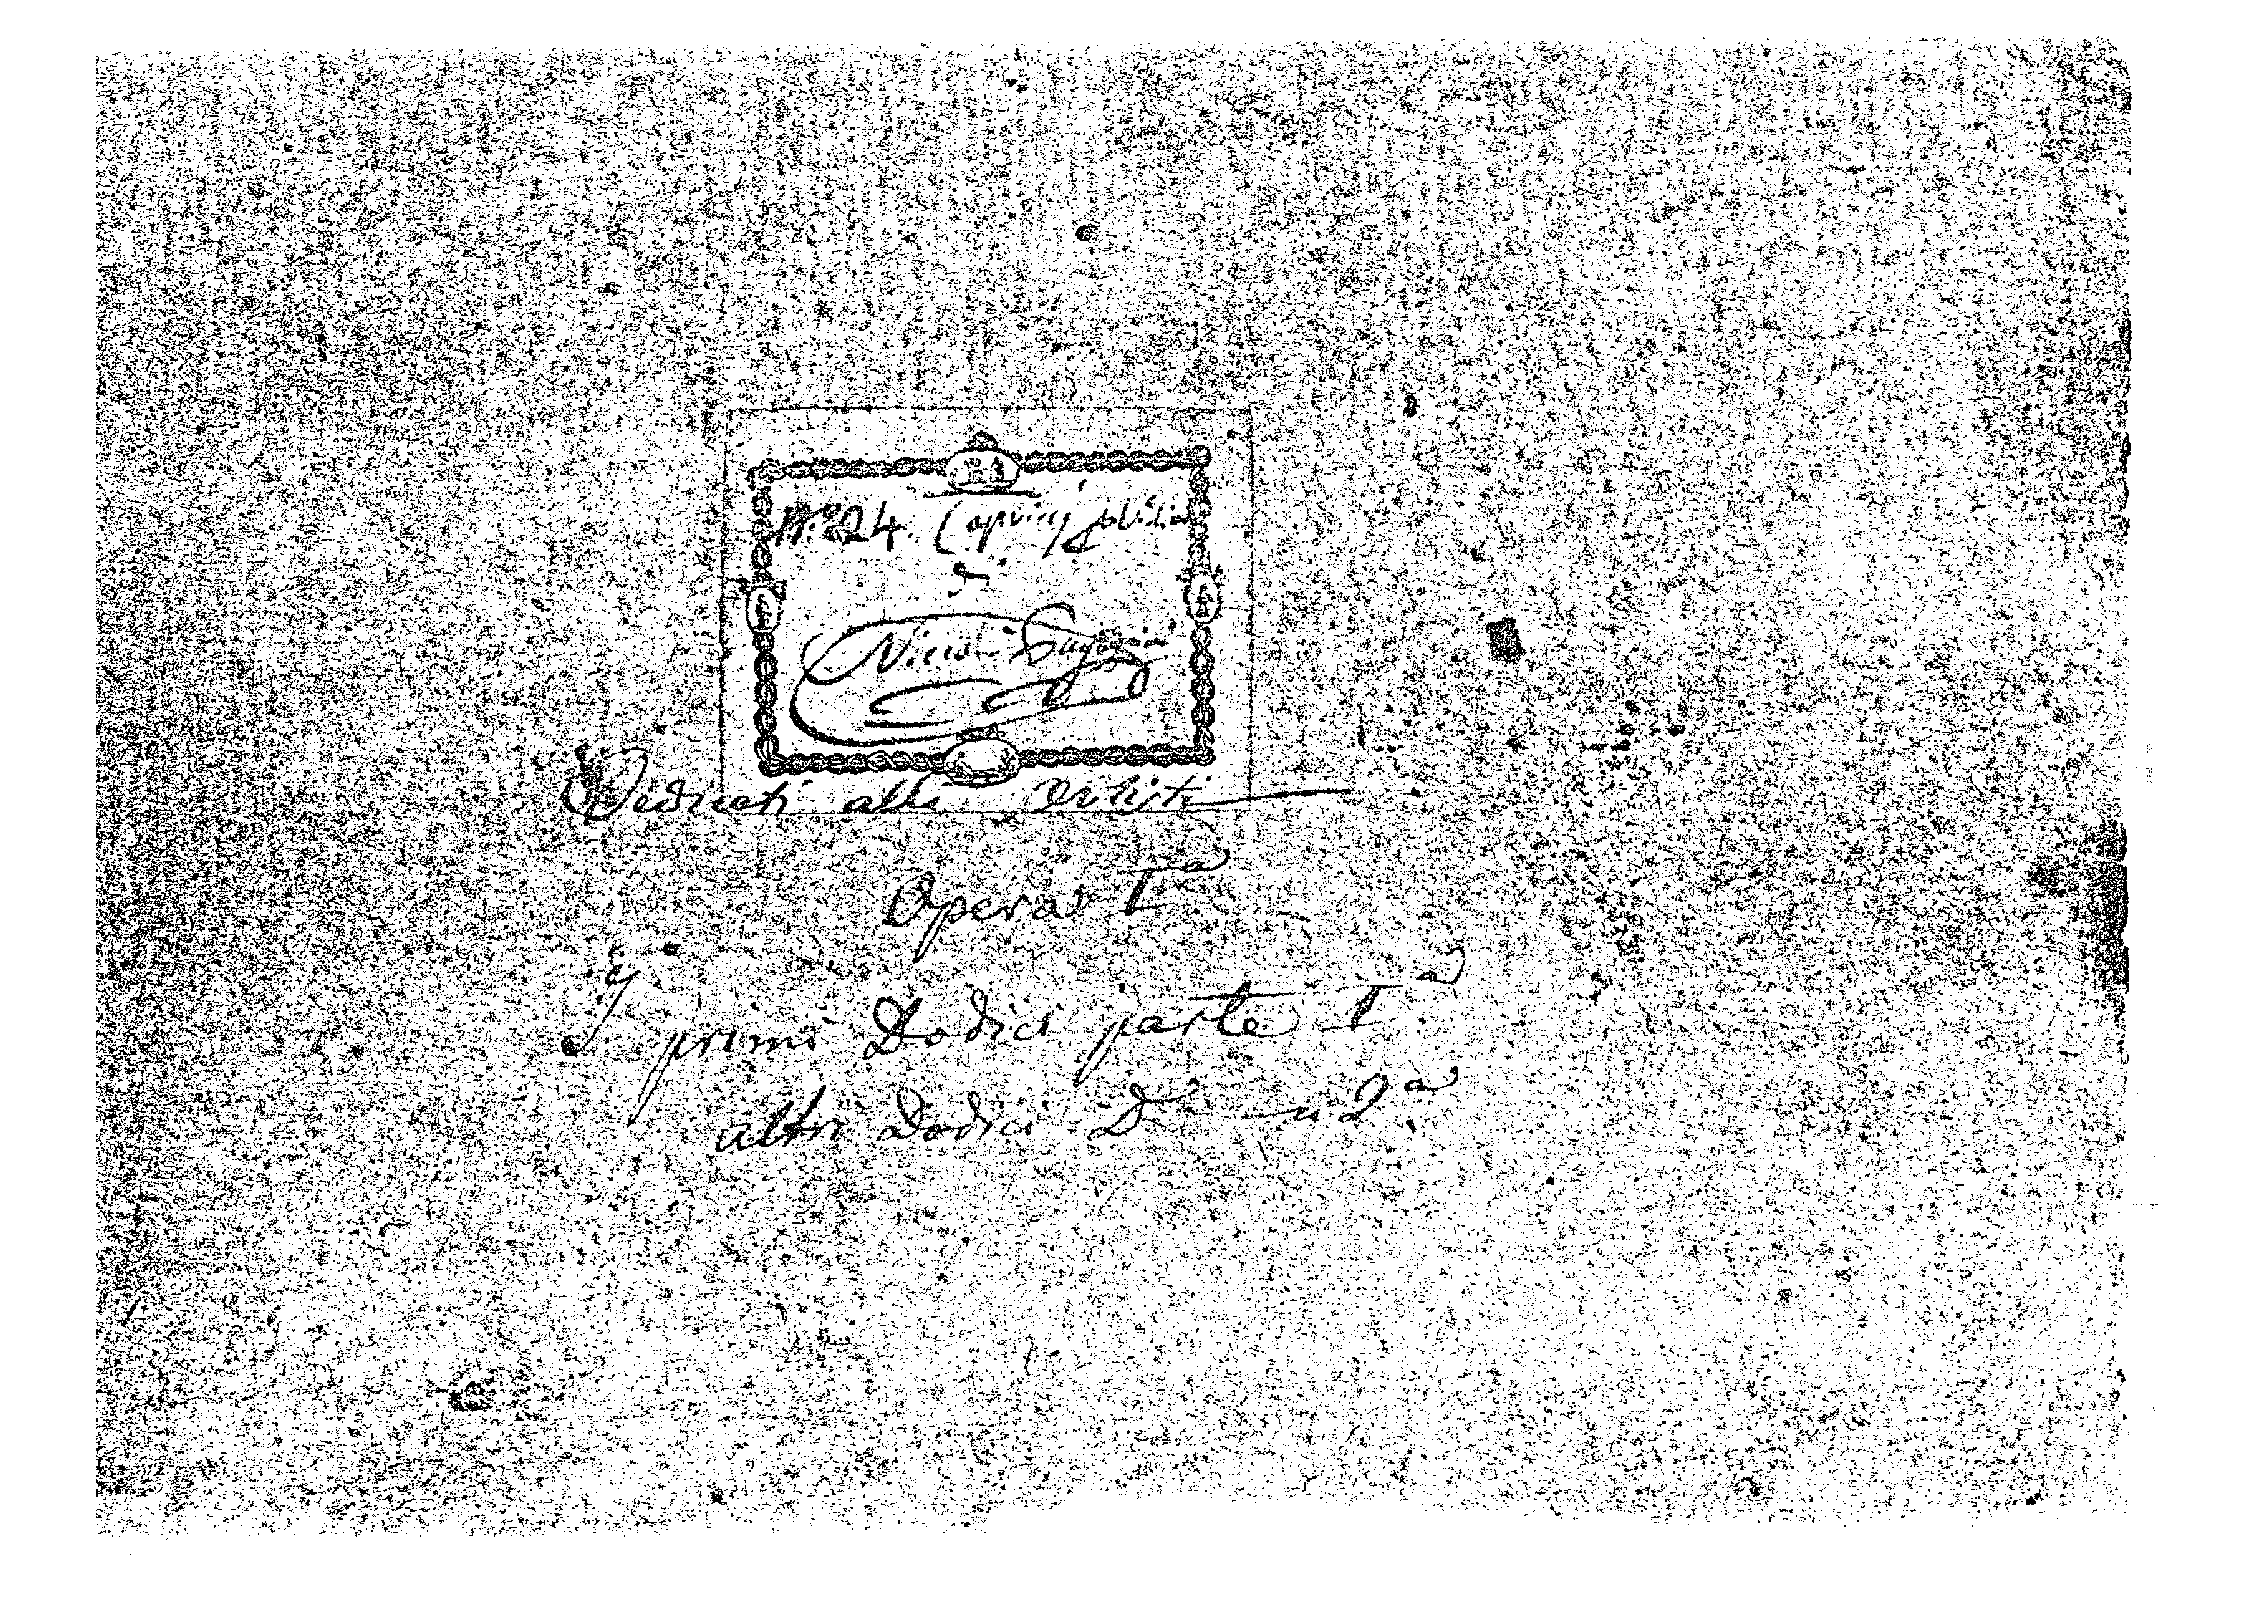 N.º 24. Capricj
di
Nicolò Paganini
Dedicati alli Artisti
Opera I.a
primi Dodici parte I.a
altri Dodici D.a " 2.a